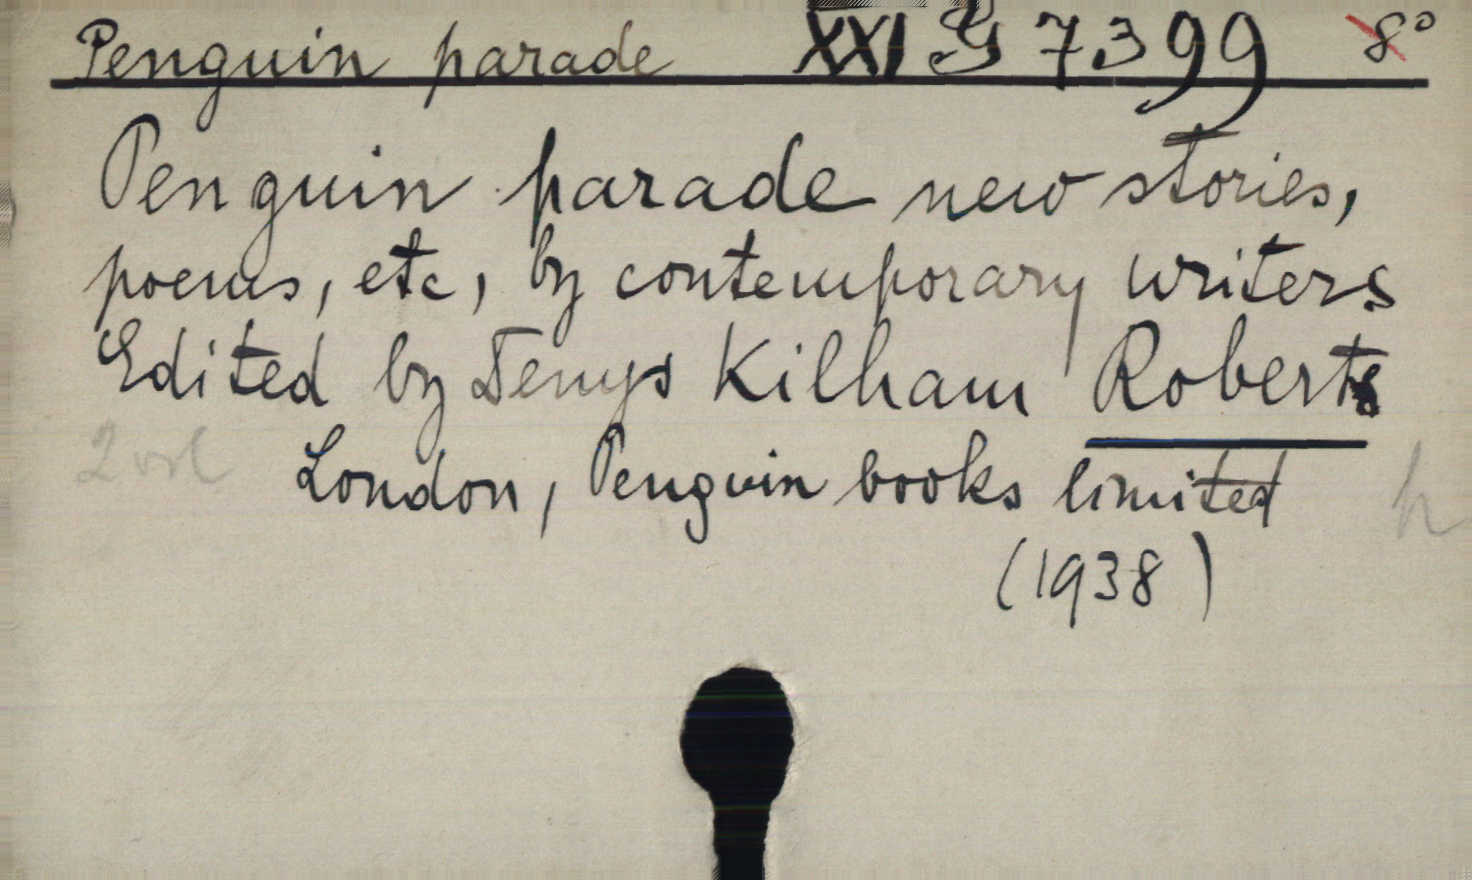 Penguin parade XXI G 7399 8°
Penguin parade new stories,
poems, etc, by contemporary writers
Edited by Denys Kilham Roberts
2 vol
London, Penguin books limited
h
(1938)